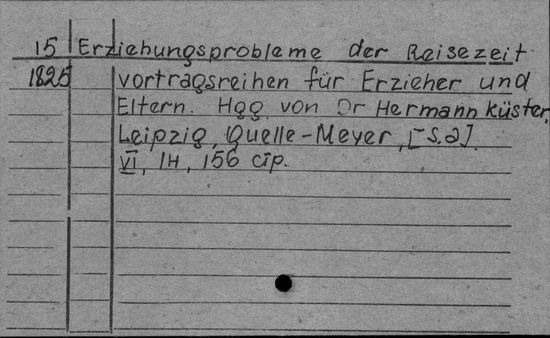 15 Erziehungsprobleme der Reisezeit
1825 vortragsreihen für Erzieher und
Eltern. Hgg von Dr Hermann Küster,
Leipzig, Quelle-Meyer, [S.a].
VI, 1H, 156 cтp.